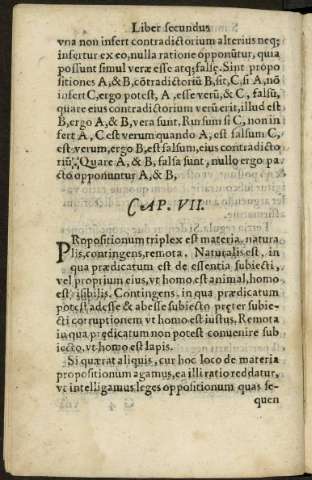 Liber secundus
vna non infert contradictorium alterius neq;
infertur ex eo, nulla ratione opponũtur, quia
possunt simul veræ esse atq; falsę. Sint propo
sitiones A, & B, cõtradictoriũ B, sit, C, si A, nõ
infert C, ergo potest, A, esse verũ, & C, falsũ,
quare eius contradictorium verũ erit, illud est
B, ergo A, & B, vera sunt. Rursum si C, non in
fert A, C est verum quando A, est falsum C,
est verum, ergo B, est falsum, eius contradicto
riũ. Quare A, & B, falsa sunt, nullo ergo pa
cto opponuntur A, & B,
CAP. VII.
PRopositionum triplex est materia, natura
lis, contingens, remota. Naturalis est, in
qua prædicatum est de essentia subiecti,
vel proprium eius, vt homo est animal, homo
est risibilis. Contingens, in qua prædicatum
potest adesse & abesse subiecto pręter subie-
cti corruptionem vt homo est iustus. Remota
in qua prędicatum non potest conuenire sub
iecto, vt homo est lapis.
Si quærat aliquis, cur hoc loco de materia
propositionum agamus, ea illi ratio reddatur,
vt intelligamus leges oppositionum quas se-
quen